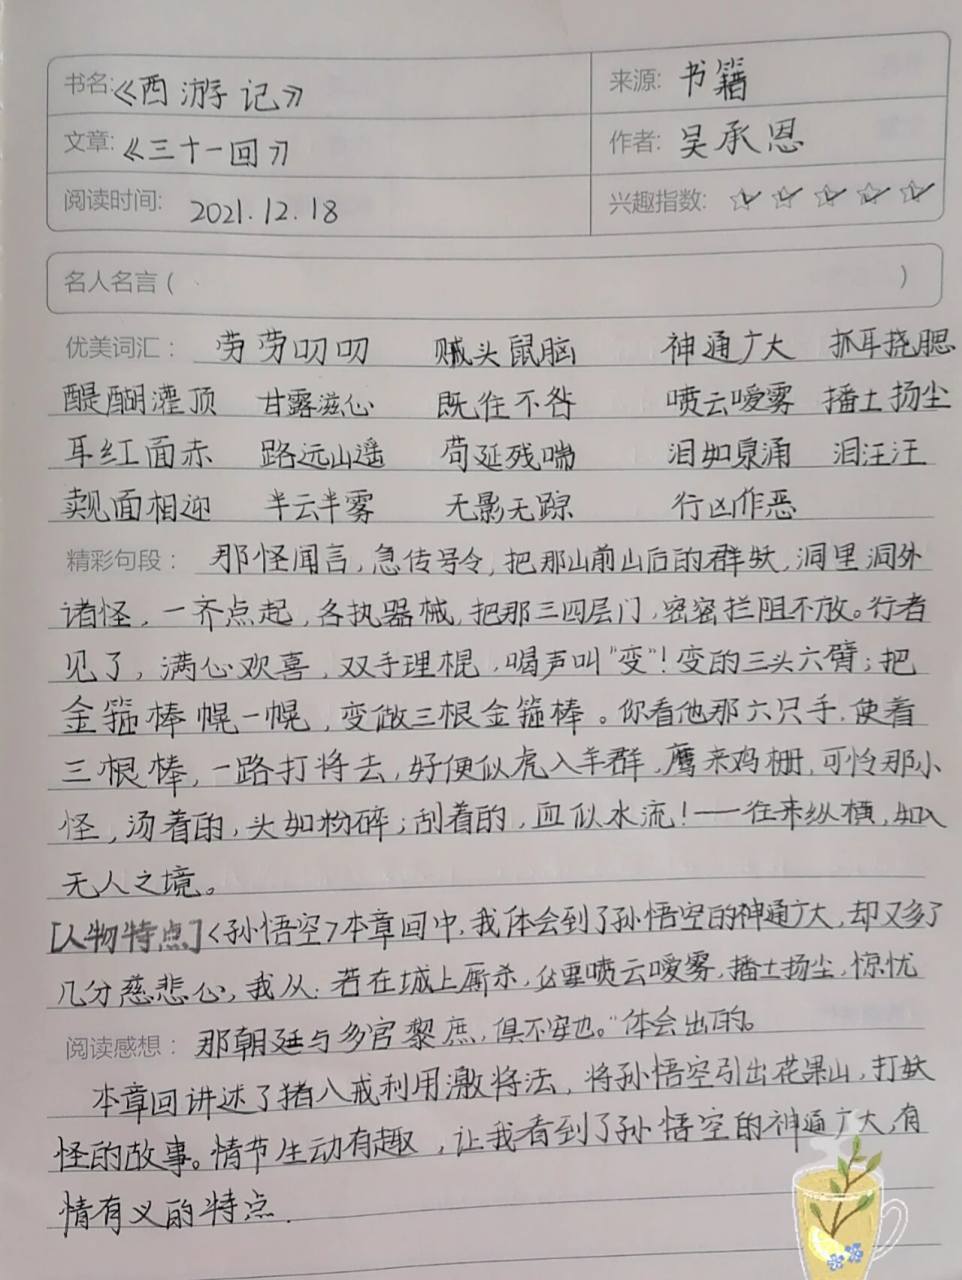 书名:《西游记》 来源: 书籍
文章:《三十一回》 作者: 吴承恩
阅读时间: 2021.12.18 兴趣指数: ☆☆☆☆☆
名人名言 ( )
优美词汇: 劳劳叨叨 贼头鼠脑 神通广大 抓耳挠腮
醍醐灌顶 甘露滋心 既往不咎 喷云嗳雾 播土扬尘
耳红面赤 路远山遥 苟延残喘 泪如泉涌 泪汪汪
觌面相迎 半云半雾 无影无踪 行凶作恶
精彩句段: 那怪闻言,急传号令,把那山前山后的群妖,洞里洞外
诸怪,一齐点起,各执器械,把那三四层门,密密拦阻不放。行者
见了,满心欢喜,双手理棍,喝声叫"变"!变的三头六臂;把
金箍棒幌一幌,变做三根金箍棒。你看他那六只手,使着
三根棒,一路打将去,好便似虎入羊群,鹰来鸡栅,可怜那小
怪,汤着的,头如粉碎;刮着的,血似水流!——往来纵横,如入
无人之境。
[人物特点]<孙悟空>本章回中,我体会到了孙悟空的神通广大,却又多了
几分慈悲心,我从:若在城上厮杀,必要喷云嗳雾,播土扬尘,惊忧
阅读感想: 那朝廷与多官黎庶,俱不安也。"体会出的。
本章回讲述了猪八戒利用激将法,将孙悟空引出花果山,打妖
怪的故事。情节生动有趣,让我看到了孙悟空的神通广大,有
情有义的特点.